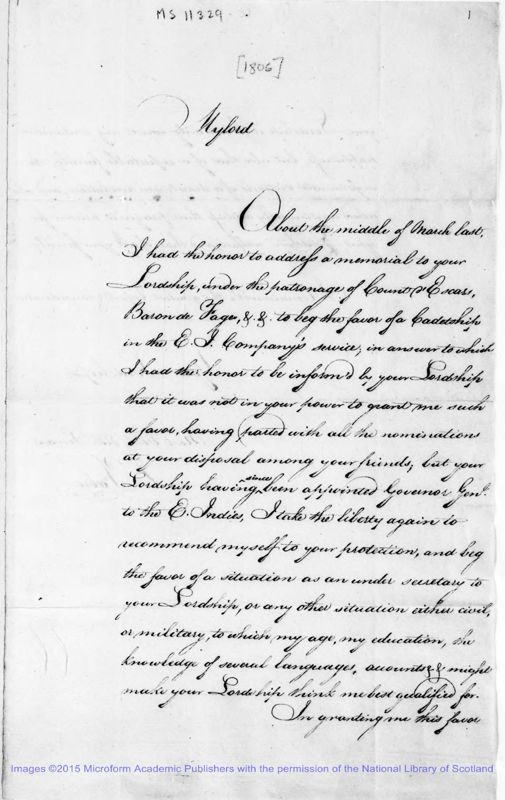 MS 11329
1
[1806]
Mylord
About the middle of March last,
I had the honor to address a memorial to your
Lordship, under the patronage of Count d'Escars,
Baron de Fage, &. &. to beg the favor of a Cadetship
in the E. I. Company's service; in answer to which
I had the honor to be inform'd by your Lordship
that it was not in your power to grant me such
a favor, having parted with all the nominations
at your disposal among your friends; but your
Lordship having since been appointed Governor Genl.
to the E. Indies, I take the liberty again to
recommend myself to your protection, and beg
the favor of a situation as an under secretary to
your Lordship, or any other situation either civil,
or military, to which my age, my education, the
knowledge of several languages, accounts && might
make your Lordship think me best qualified for.
In granting me this favor
Images ©2015 Microform Academic Publishers with the permission of the National Library of Scotland